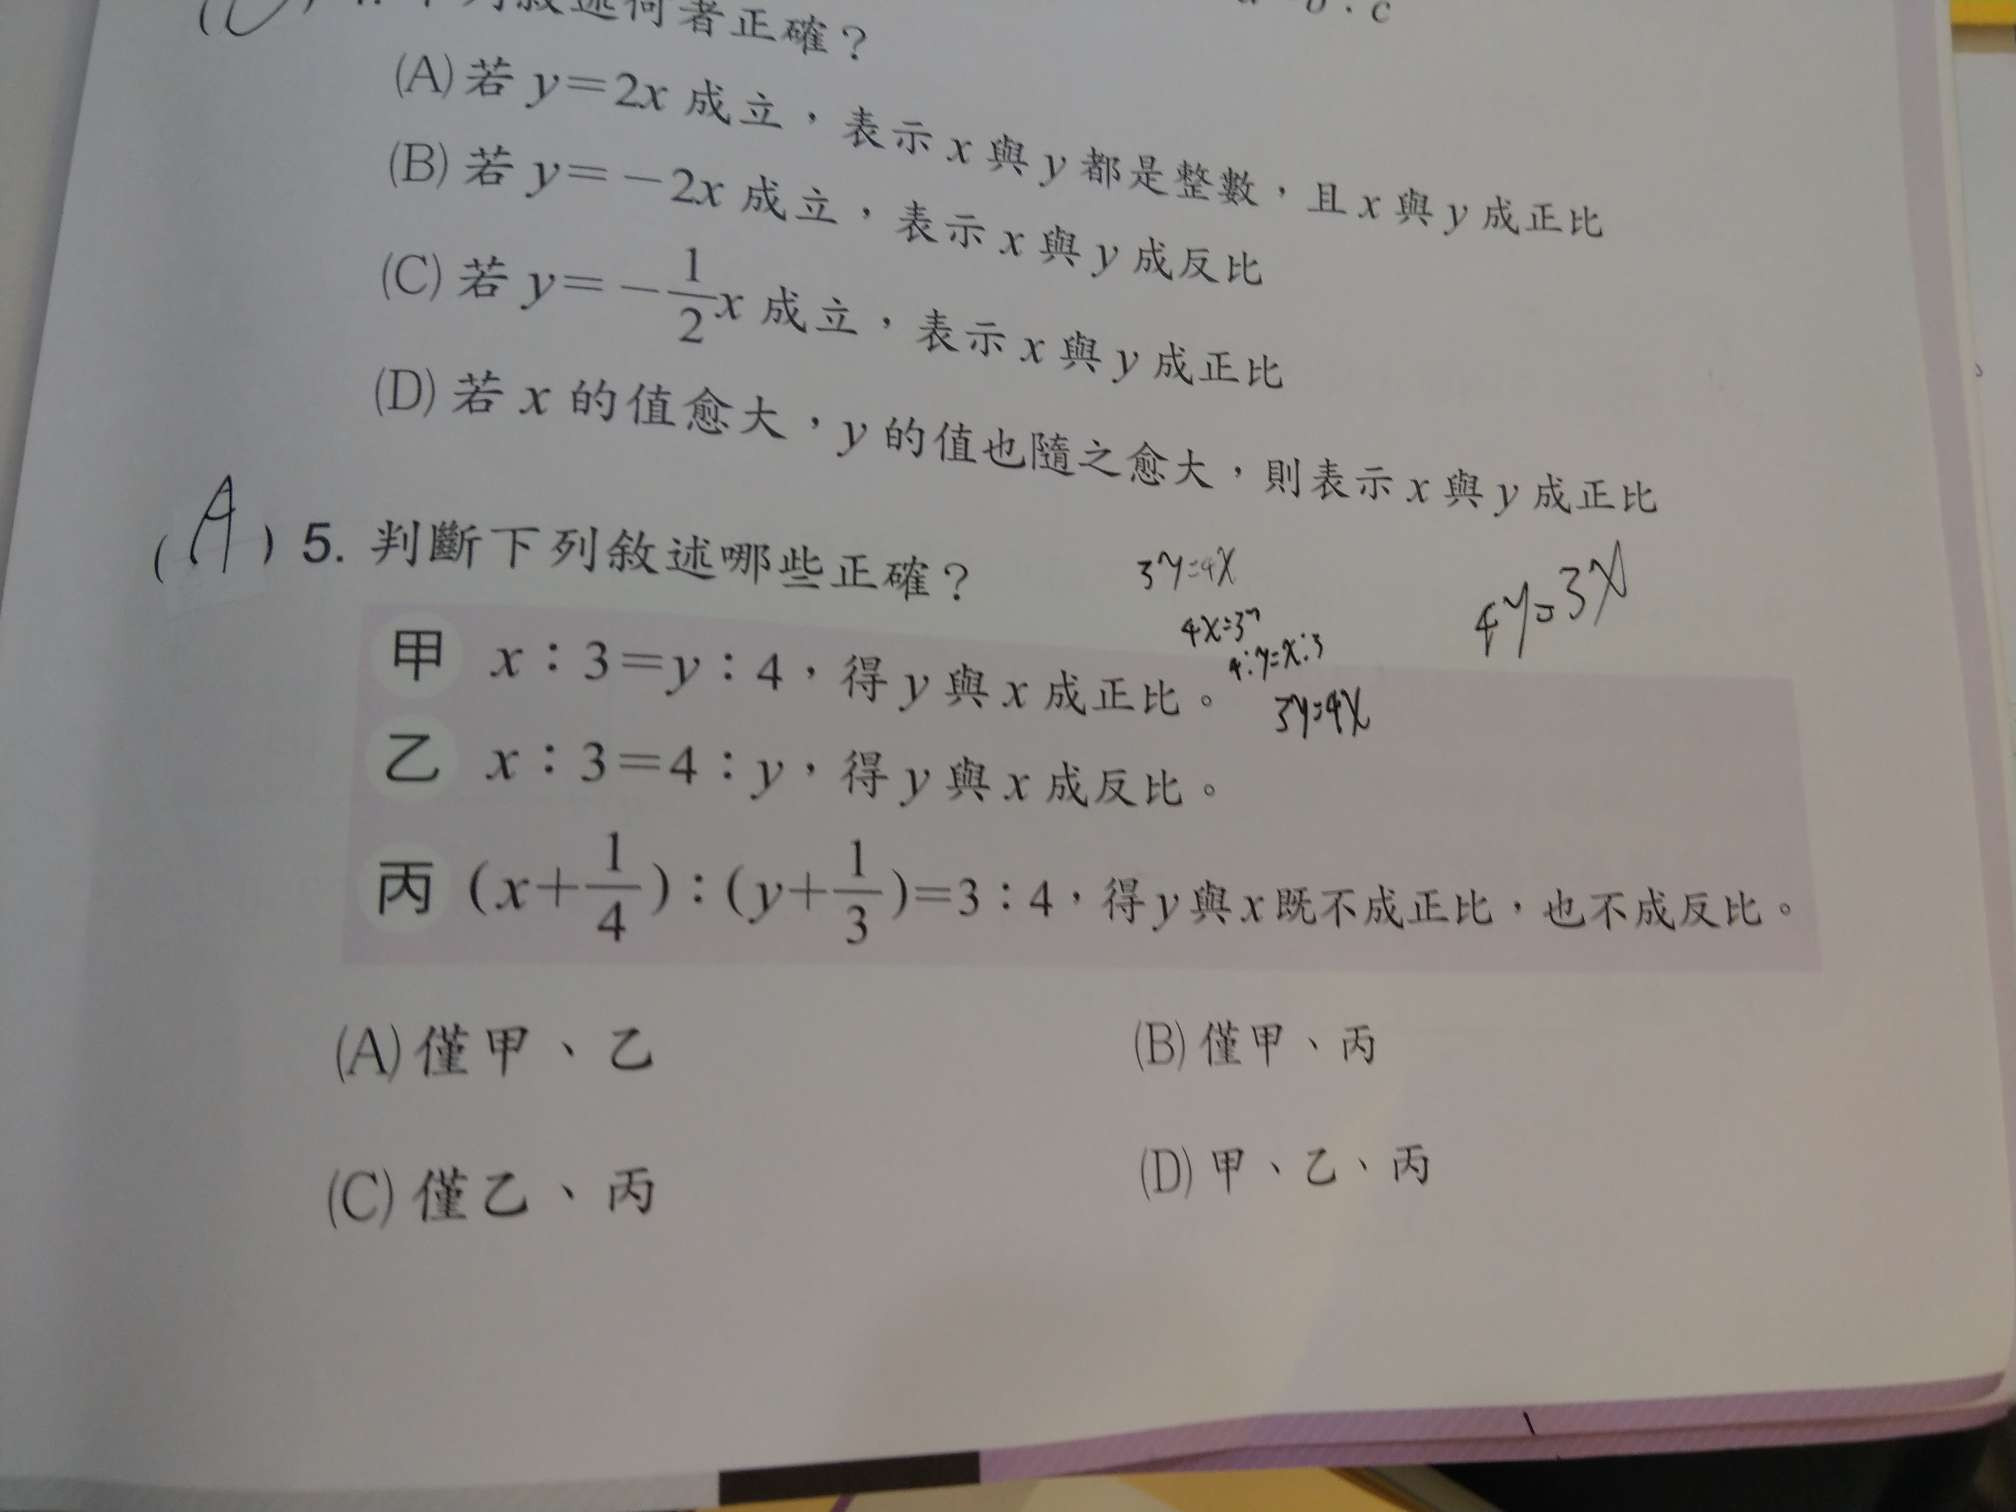 b : c
4. 下列敘述何者正確？
(A) 若 y=2x 成立，表示 x 與 y 都是整數，且 x 與 y 成正比
(B) 若 y=－2x 成立，表示 x 與 y 成反比
(C) 若 y=－1/2x 成立，表示 x 與 y 成正比
(D) 若 x 的值愈大，y 的值也隨之愈大，則表示 x 與 y 成正比
(A) 5. 判斷下列敘述哪些正確？
3y=4x
4x=3y
4:y=x:3
3y=4x
4y=3x
甲 x：3=y：4，得 y 與 x 成正比。
乙 x：3=4：y，得 y 與 x 成反比。
丙 (x+1/4)：(y+1/3)=3：4，得 y 與 x 既不成正比，也不成反比。
(A) 僅甲、乙
(B) 僅甲、丙
(C) 僅乙、丙
(D) 甲、乙、丙